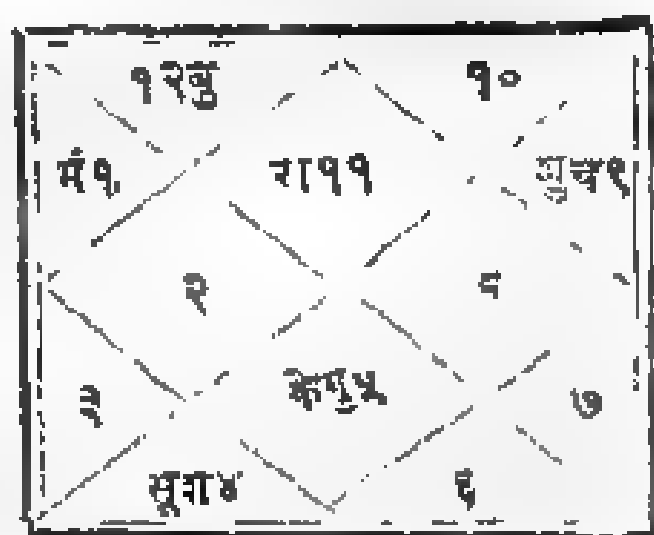 १२बु
१०
मं१
रा११
चं९
२
८
३
केगु५
७
सूश४
६